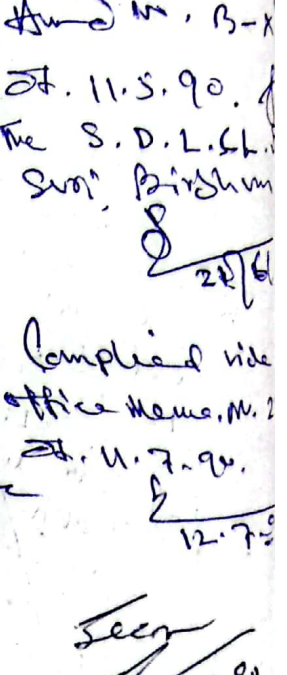 No. B-X
dt. 11.5.90.
The S.D.L.&L.
Suri, Birbhum
21/6
Complied vide
office Memo. No. 2
dt. 11.7.90.
12.7.9
Seen